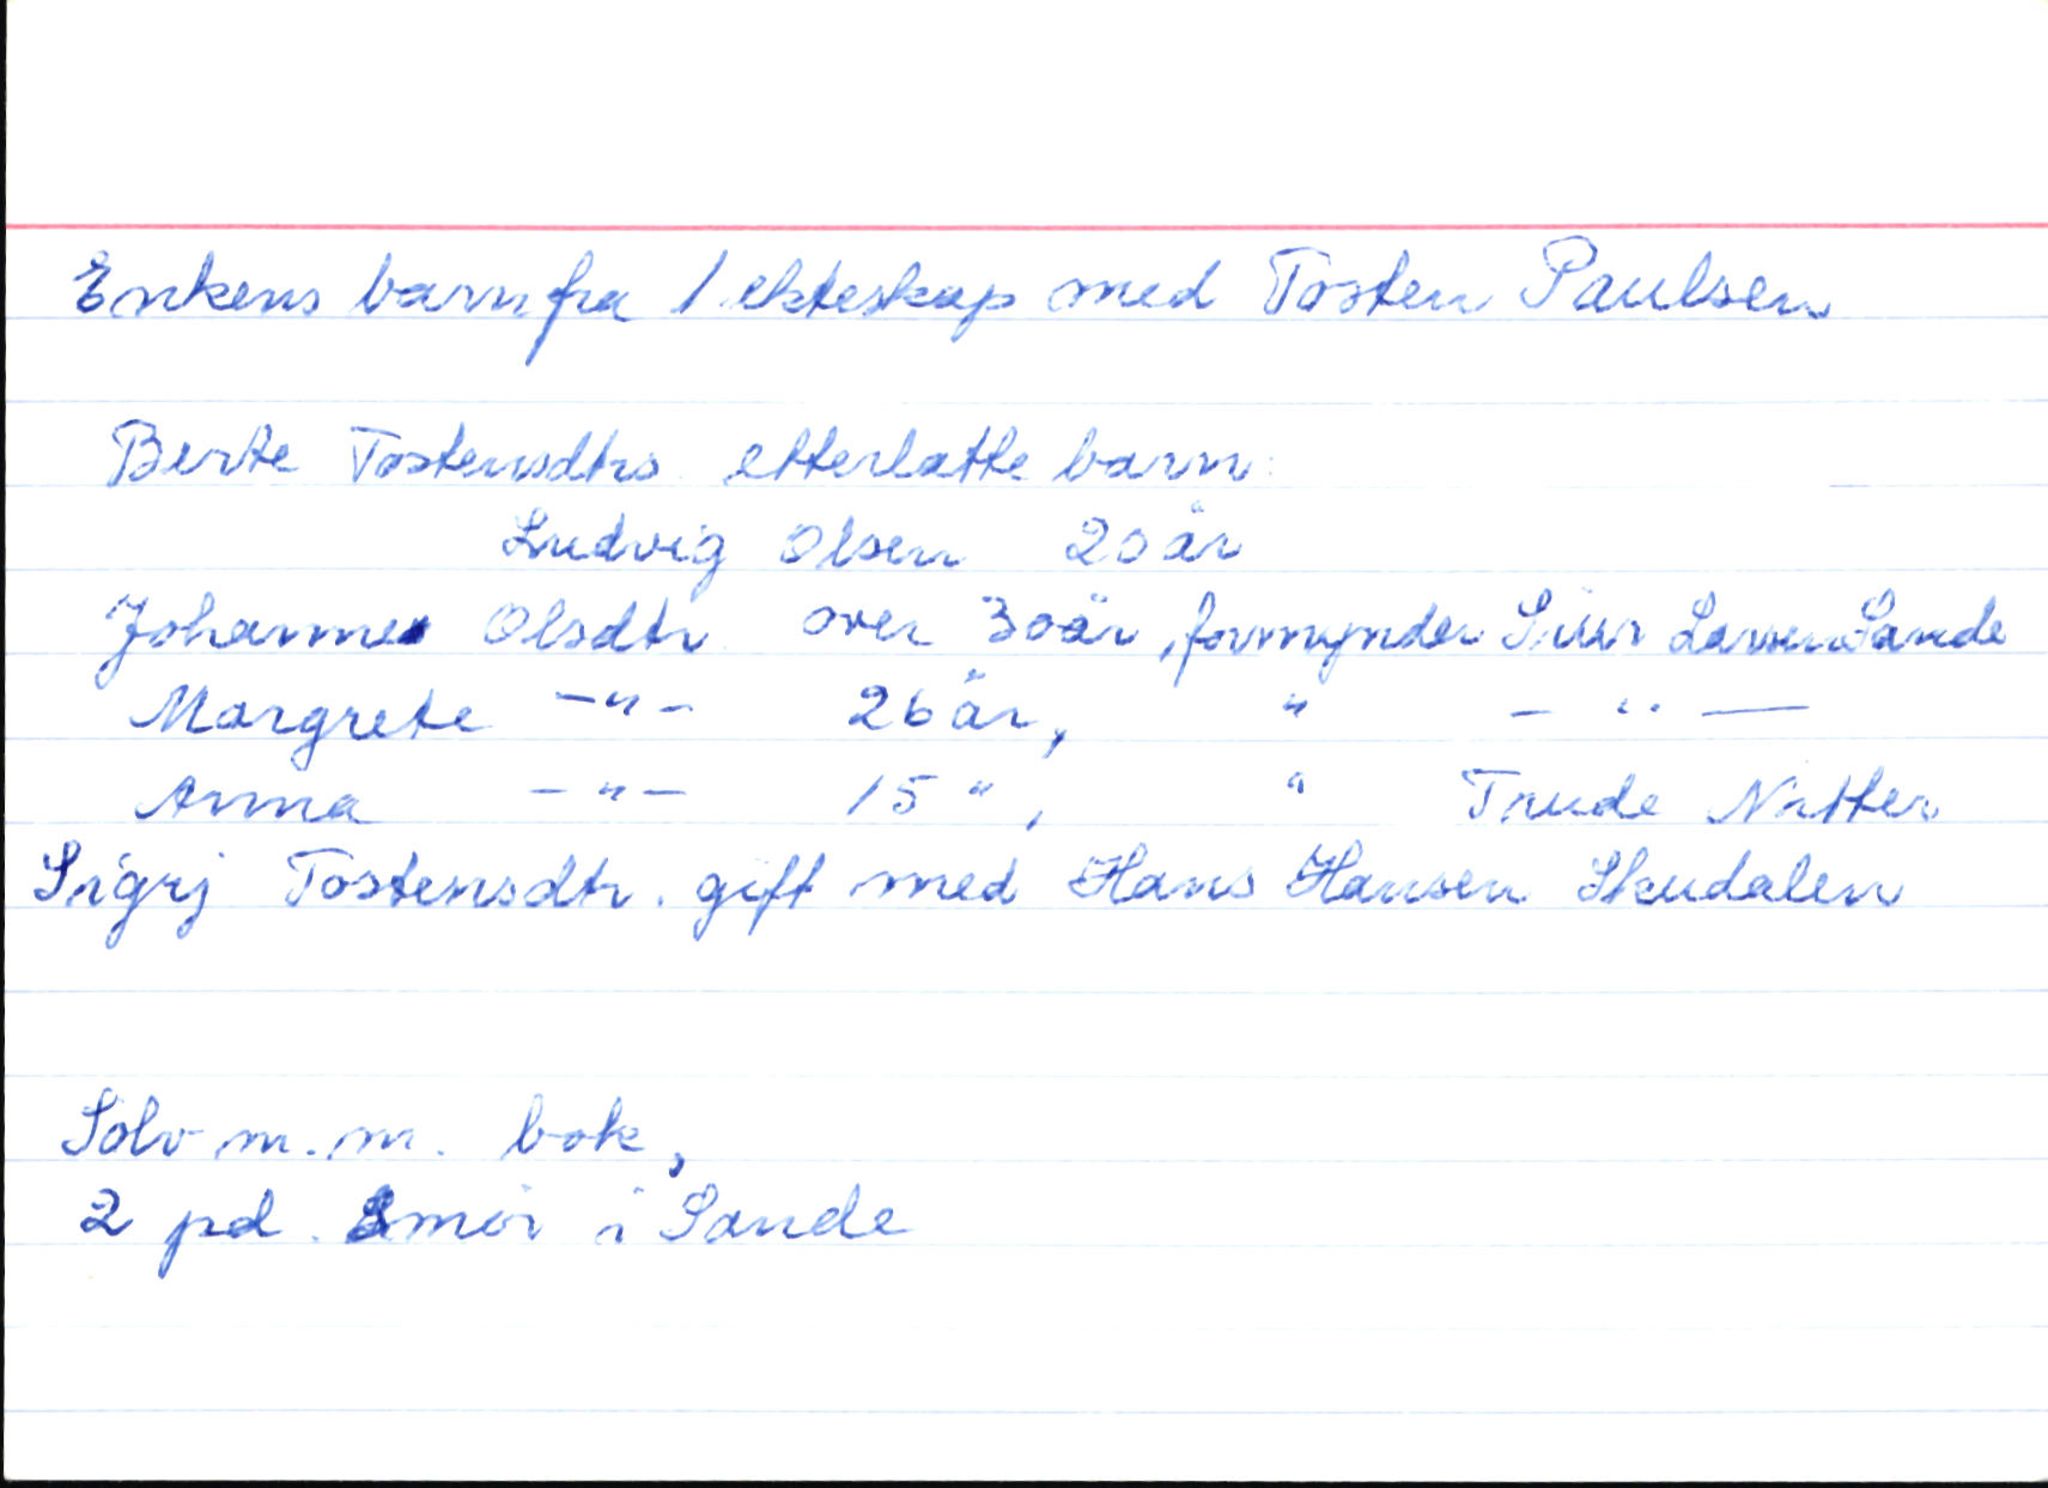 Enkens barn fra 1. ekteskap med Tosten Paulsen
Berte Tostensdtrs. etterlatte barn:
Ludvig Olsen 20 år
Johanne Olsdtr. over 30 år, formynder Siur Larsen Sande
Margrete -"- 26 år, " - " -
Anna -"- 15 ", " Trude Nitter
Sigrj Tostensdtr. gift med Hans Hansen Skudalen
Sølv m.m. bok,
2 pd. Smør i Sande